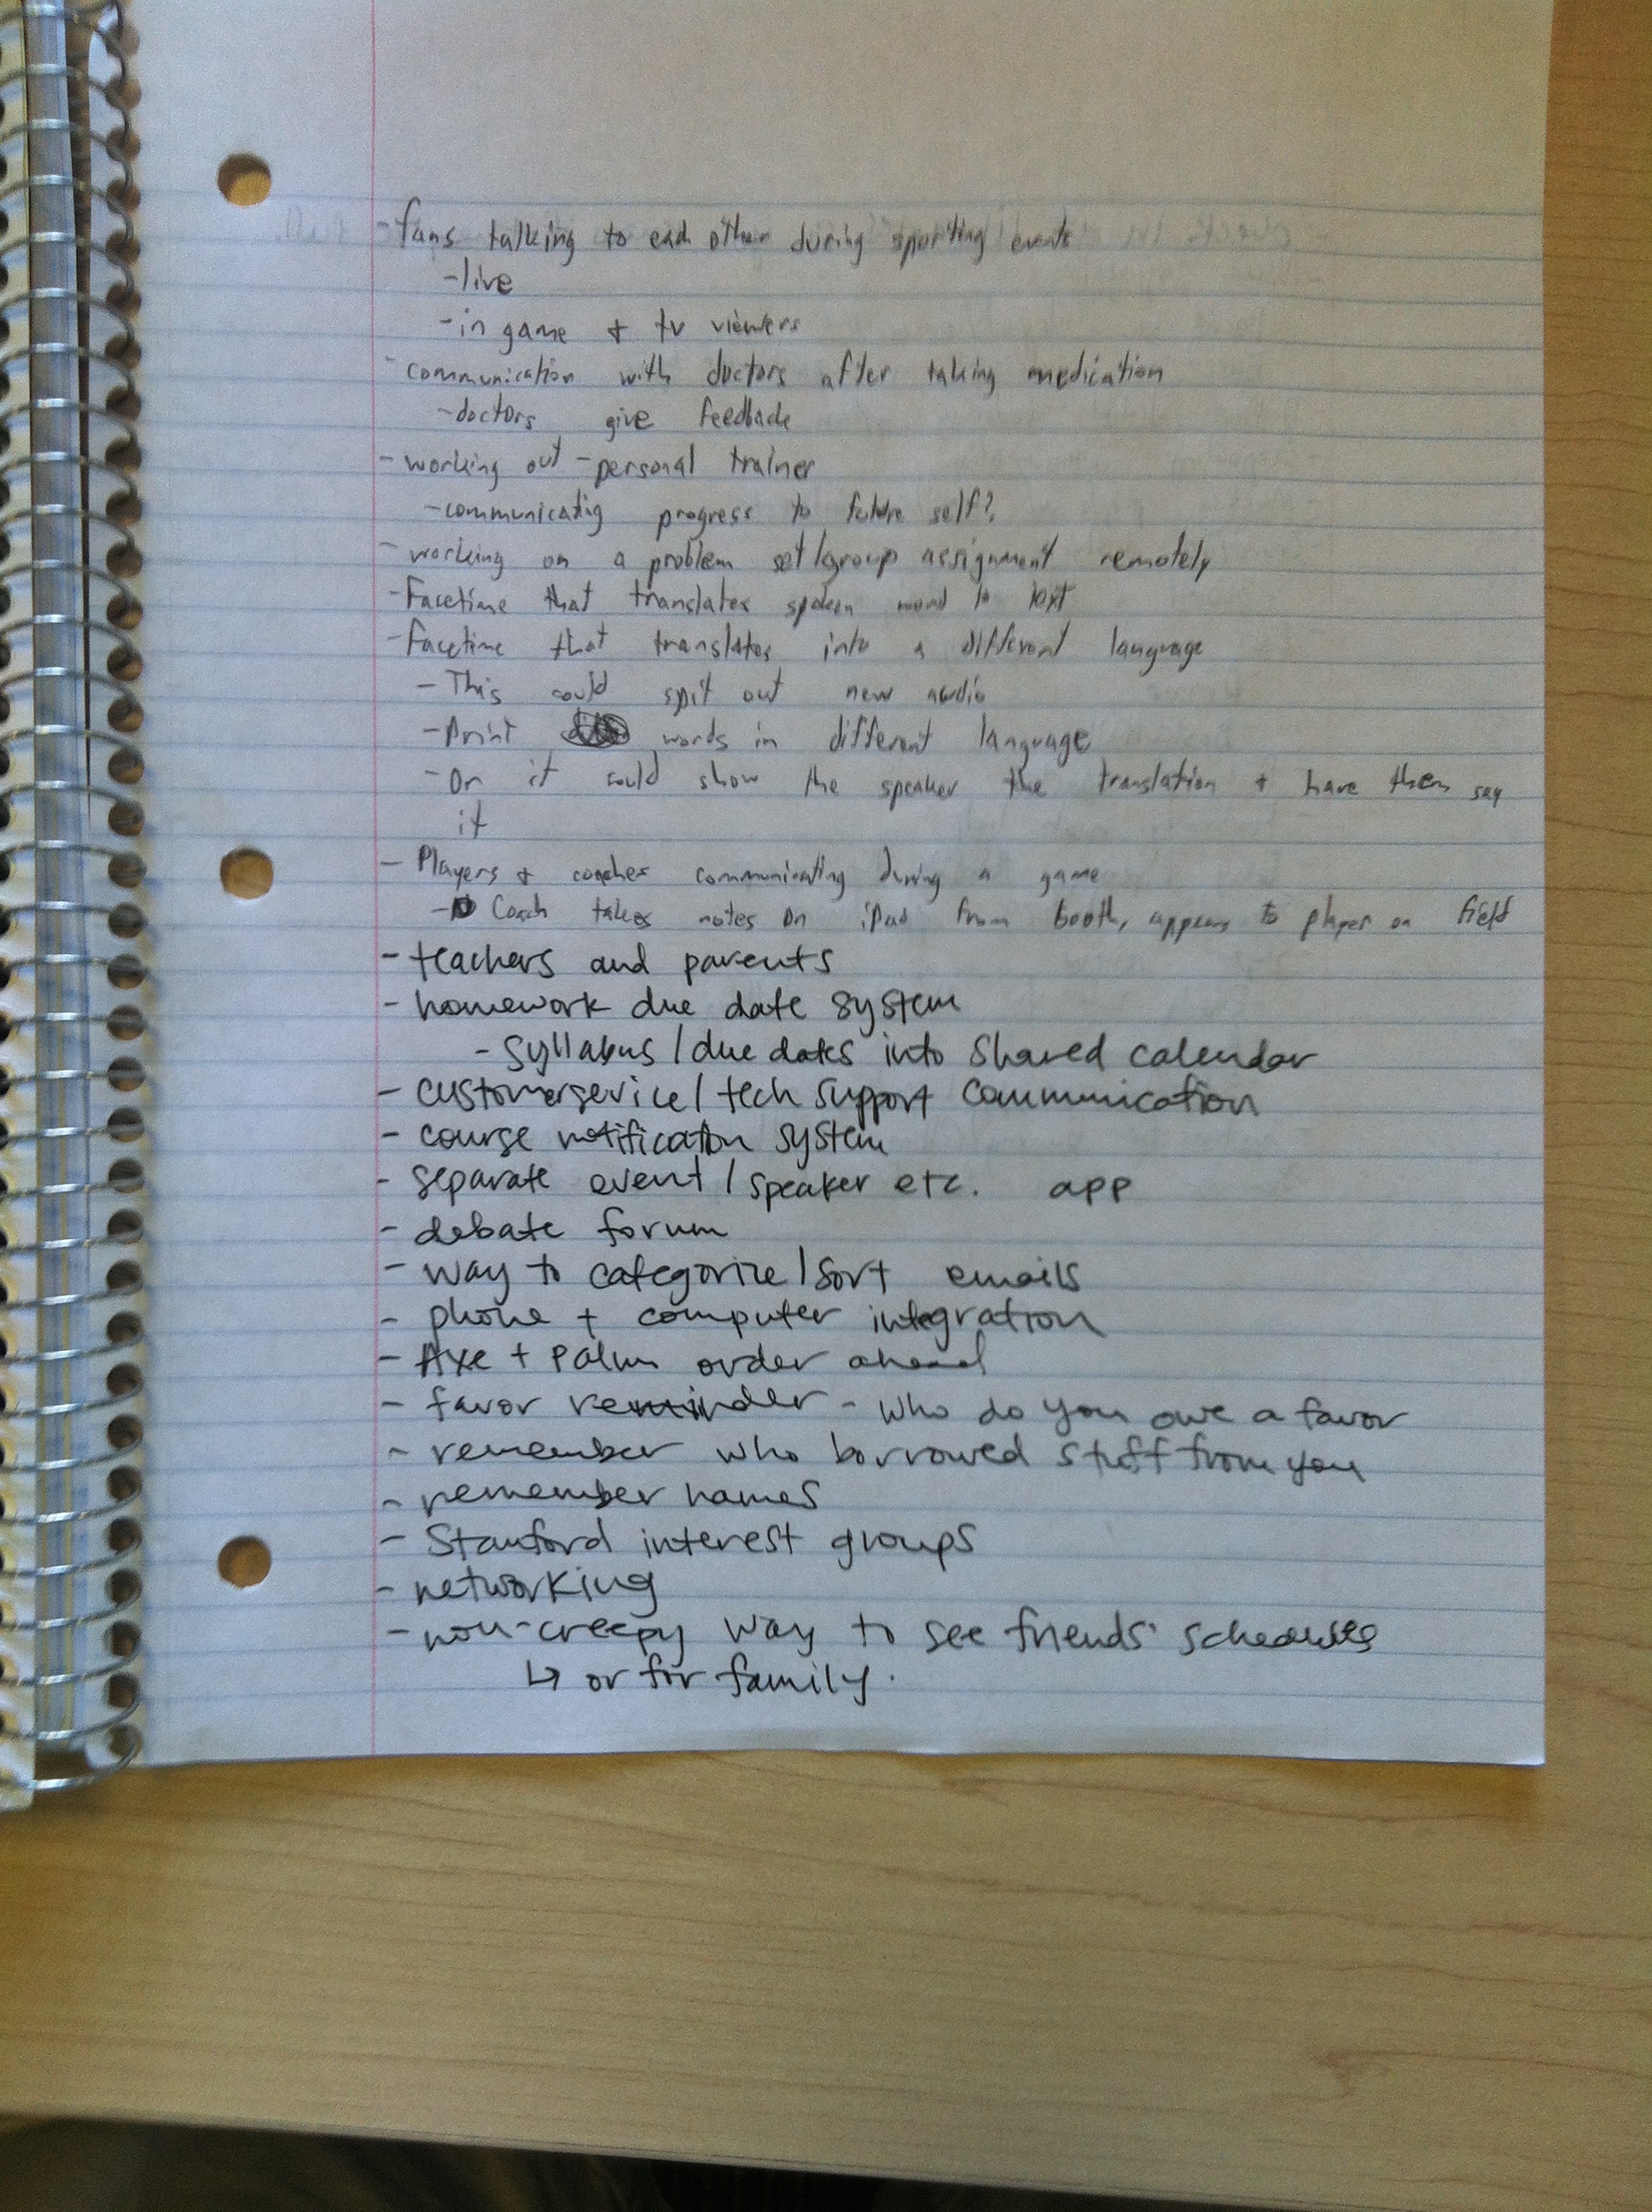 - fans talking to each other during sporting events
-live
-in game + tv viewers
- communication with doctors after taking medication
-doctors give feedback
- working out - personal trainer
-communicatig progress to future self?
- working on a problem set/group assignment remotely
- Facetime that translates spoken word to text
- Facetime that translates into a different language
- This could spit out new audio
- Print words in different language
- Or it could show the speaker the translation + have them say
it
- Players + coaches communicating during a game
- Coach takes notes on iPad from booth, appears to player on field
- teachers and parents
- homework due date system
- Syllabus / due dates into shared calendar
- customerservice / tech support communication
- course notification system
- separate event / speaker etc. app
- debate forum
- way to categorize / sort emails
- phone + computer integration
- Axe + Palm order ahead
- favor reminder - who do you owe a favor
- remember who borrowed stuff from you
- remember names
- Stanford interest groups
- networking
- non-creepy way to see friends' schedules
↳ or for family.